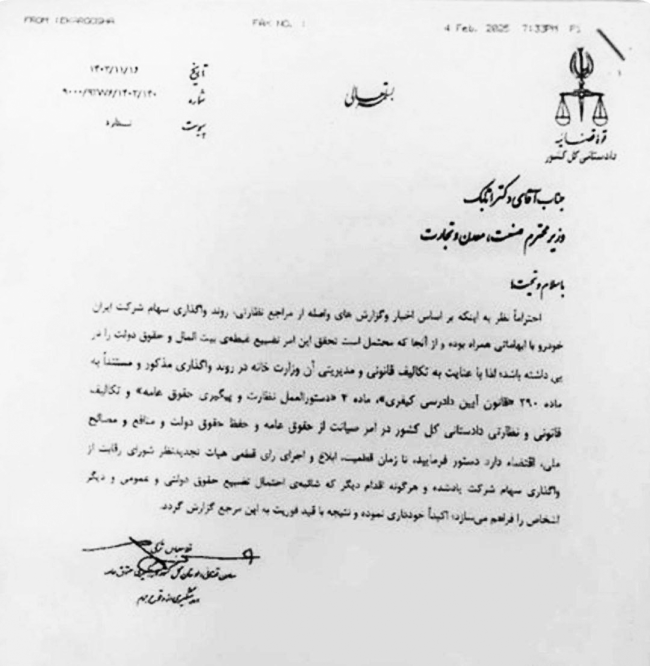 FROM :EKARGOSHA FAX NO. : 4 Feb. 2025 7:33PM P1
تاریخ ۱۴۰۳/۱۱/۱۶
شماره ۹۰۰۰/۹۲۷۷۶/۱۴۰۳/۱۴۰
پیوست ندارد
بسمه تعالی
قوه قضائیه
دادستانی کل کشور
جناب آقای دکتر اتابک
وزیر محترم صنعت، معدن و تجارت
با سلام و تحیت؛
احتراماً نظر به اینکه بر اساس اخبار وگزارش های واصله از مراجع نظارتی، روند واگذاری سهام شرکت ایران
خودرو با ابهاماتی همراه بوده و از آنجا که محتمل است تحقق این امر تضییع غبطه‌ی بیت المال و حقوق دولت را در
پی داشته باشد؛ لذا با عنایت به تکالیف قانونی و مدیریتی آن وزارت خانه در روند واگذاری مذکور و مستنداً به
ماده ۲۹۰ «قانون آیین دادرسی کیفری»، ماده ۴ «دستورالعمل نظارت و پیگیری حقوق عامه» و تکالیف
قانونی و نظارتی دادستانی کل کشور در امر صیانت از حقوق عامه و حفظ حقوق دولت و منافع و مصالح
ملی، اقتضاء دارد دستور فرمایید، تا زمان قطعیت، ابلاغ و اجرای رای قطعی هیات تجدیدنظر شورای رقابت از
واگذاری سهام شرکت یادشده و هرگونه اقدام دیگر که شائبه‌ی احتمال تضییع حقوق دولتی و عمومی و دیگر
اشخاص را فراهم می‌سازد؛ اکیداً خودداری نموده و نتیجه با قید فوریت به این مرجع گزارش گردد.